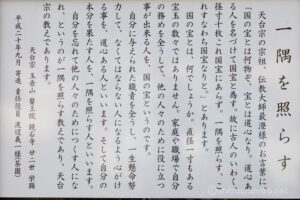 一隅を照らす
天台宗の宗祖、伝教大師最澄様のお言葉に
「国の宝とは何物ぞ、宝とは道心なり。道心あ
る人を名づけて国宝と為す。故に古人のいわく、
径寸十枚これ国宝にあらず。一隅を照らす、こ
れすなわち国宝なりと。」とあります。
国の宝とは、何でしょうか。直径一寸もある
宝玉の数々ではありません。家庭や職場で自分
の務めを全うして、他の人々のために役に立つ
事が出来る人を、国の宝というのです。
自分に与えられた職責を全うし、一生懸命努
力して、なくてはならない人になるよう心がけ
る事を、道心ある人といいます。そして自分の
本分を果たす人を、一隅を照らす人といいます。
自分を忘れて他の人々のためにつくす人にな
れ、というのが一隅を照らす教えであり、天台
宗の教えであります。
天台宗 玉泰山 醫王院 鏡石寺 廿二世 榮順
平成二十年九月 寄進 責任役員 渡辺義一(様茶園)